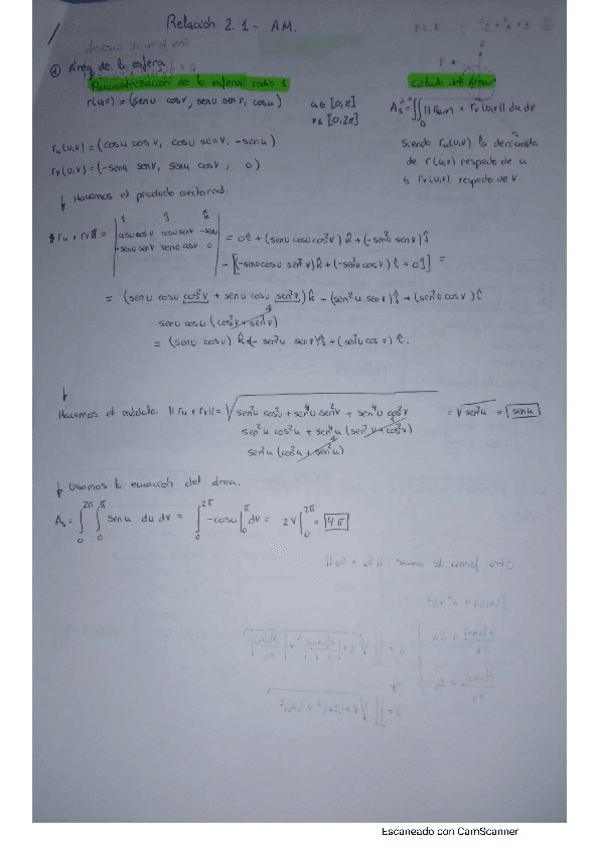 Relación 2.1 - AM.
① Área de la esfera
Parametrización de la esfera radio 1
r(u,v) = (senu cosv, senu senv, cosu)
u ∈ [0,π]
v ∈ [0,2π]
r_u(u,v) = (cosu cosv, cosu senv, -senu)
r_v(u,v) = (-senu senv, senu cosv, 0)
Cálculo del área
A_s = ∬_D ||r_u(u,v) × r_v(u,v)|| du dv
Siendo r_u(u,v) la derivada
de r(u,v) respecto de u
y r_v(u,v) respecto de v
↓ Hacemos el producto vectorial.
r_u × r_v =
î ĵ k̂
cosu cosv cosu senv -senu
-senu senv senu cosv 0
= 0î + (senu cosu cos²v) k̂ + (-sen²u senv) ĵ
- [(-senu cosu sen²v) k̂ + (-sen²u cosv) î + 0ĵ] =
= (senu cosu cos²v + senu cosu sen²v) k̂ - (sen²u senv) ĵ + (sen²u cosv) î
senu cosu (cos²v + sen²v) 1
= (senu cosu) k̂ + (-sen²u senv) ĵ + (sen²u cosv) î.
↓
Hacemos el módulo. ||r_u × r_v|| = √(sen²u cos²u + sen⁴u sen²v + sen⁴u cos²v) = √sen²u = senu
sen²u cos²u + sen⁴u (sen²v + cos²v) 1
sen²u (cos²u + sen²u) 1
↓ Usamos la ecuación del área.
A_s = ∫₀^2π ∫₀^π senu du dv = ∫₀^2π -cosu |₀^π dv = 2v |₀^2π = 4π
Escaneado con CamScanner